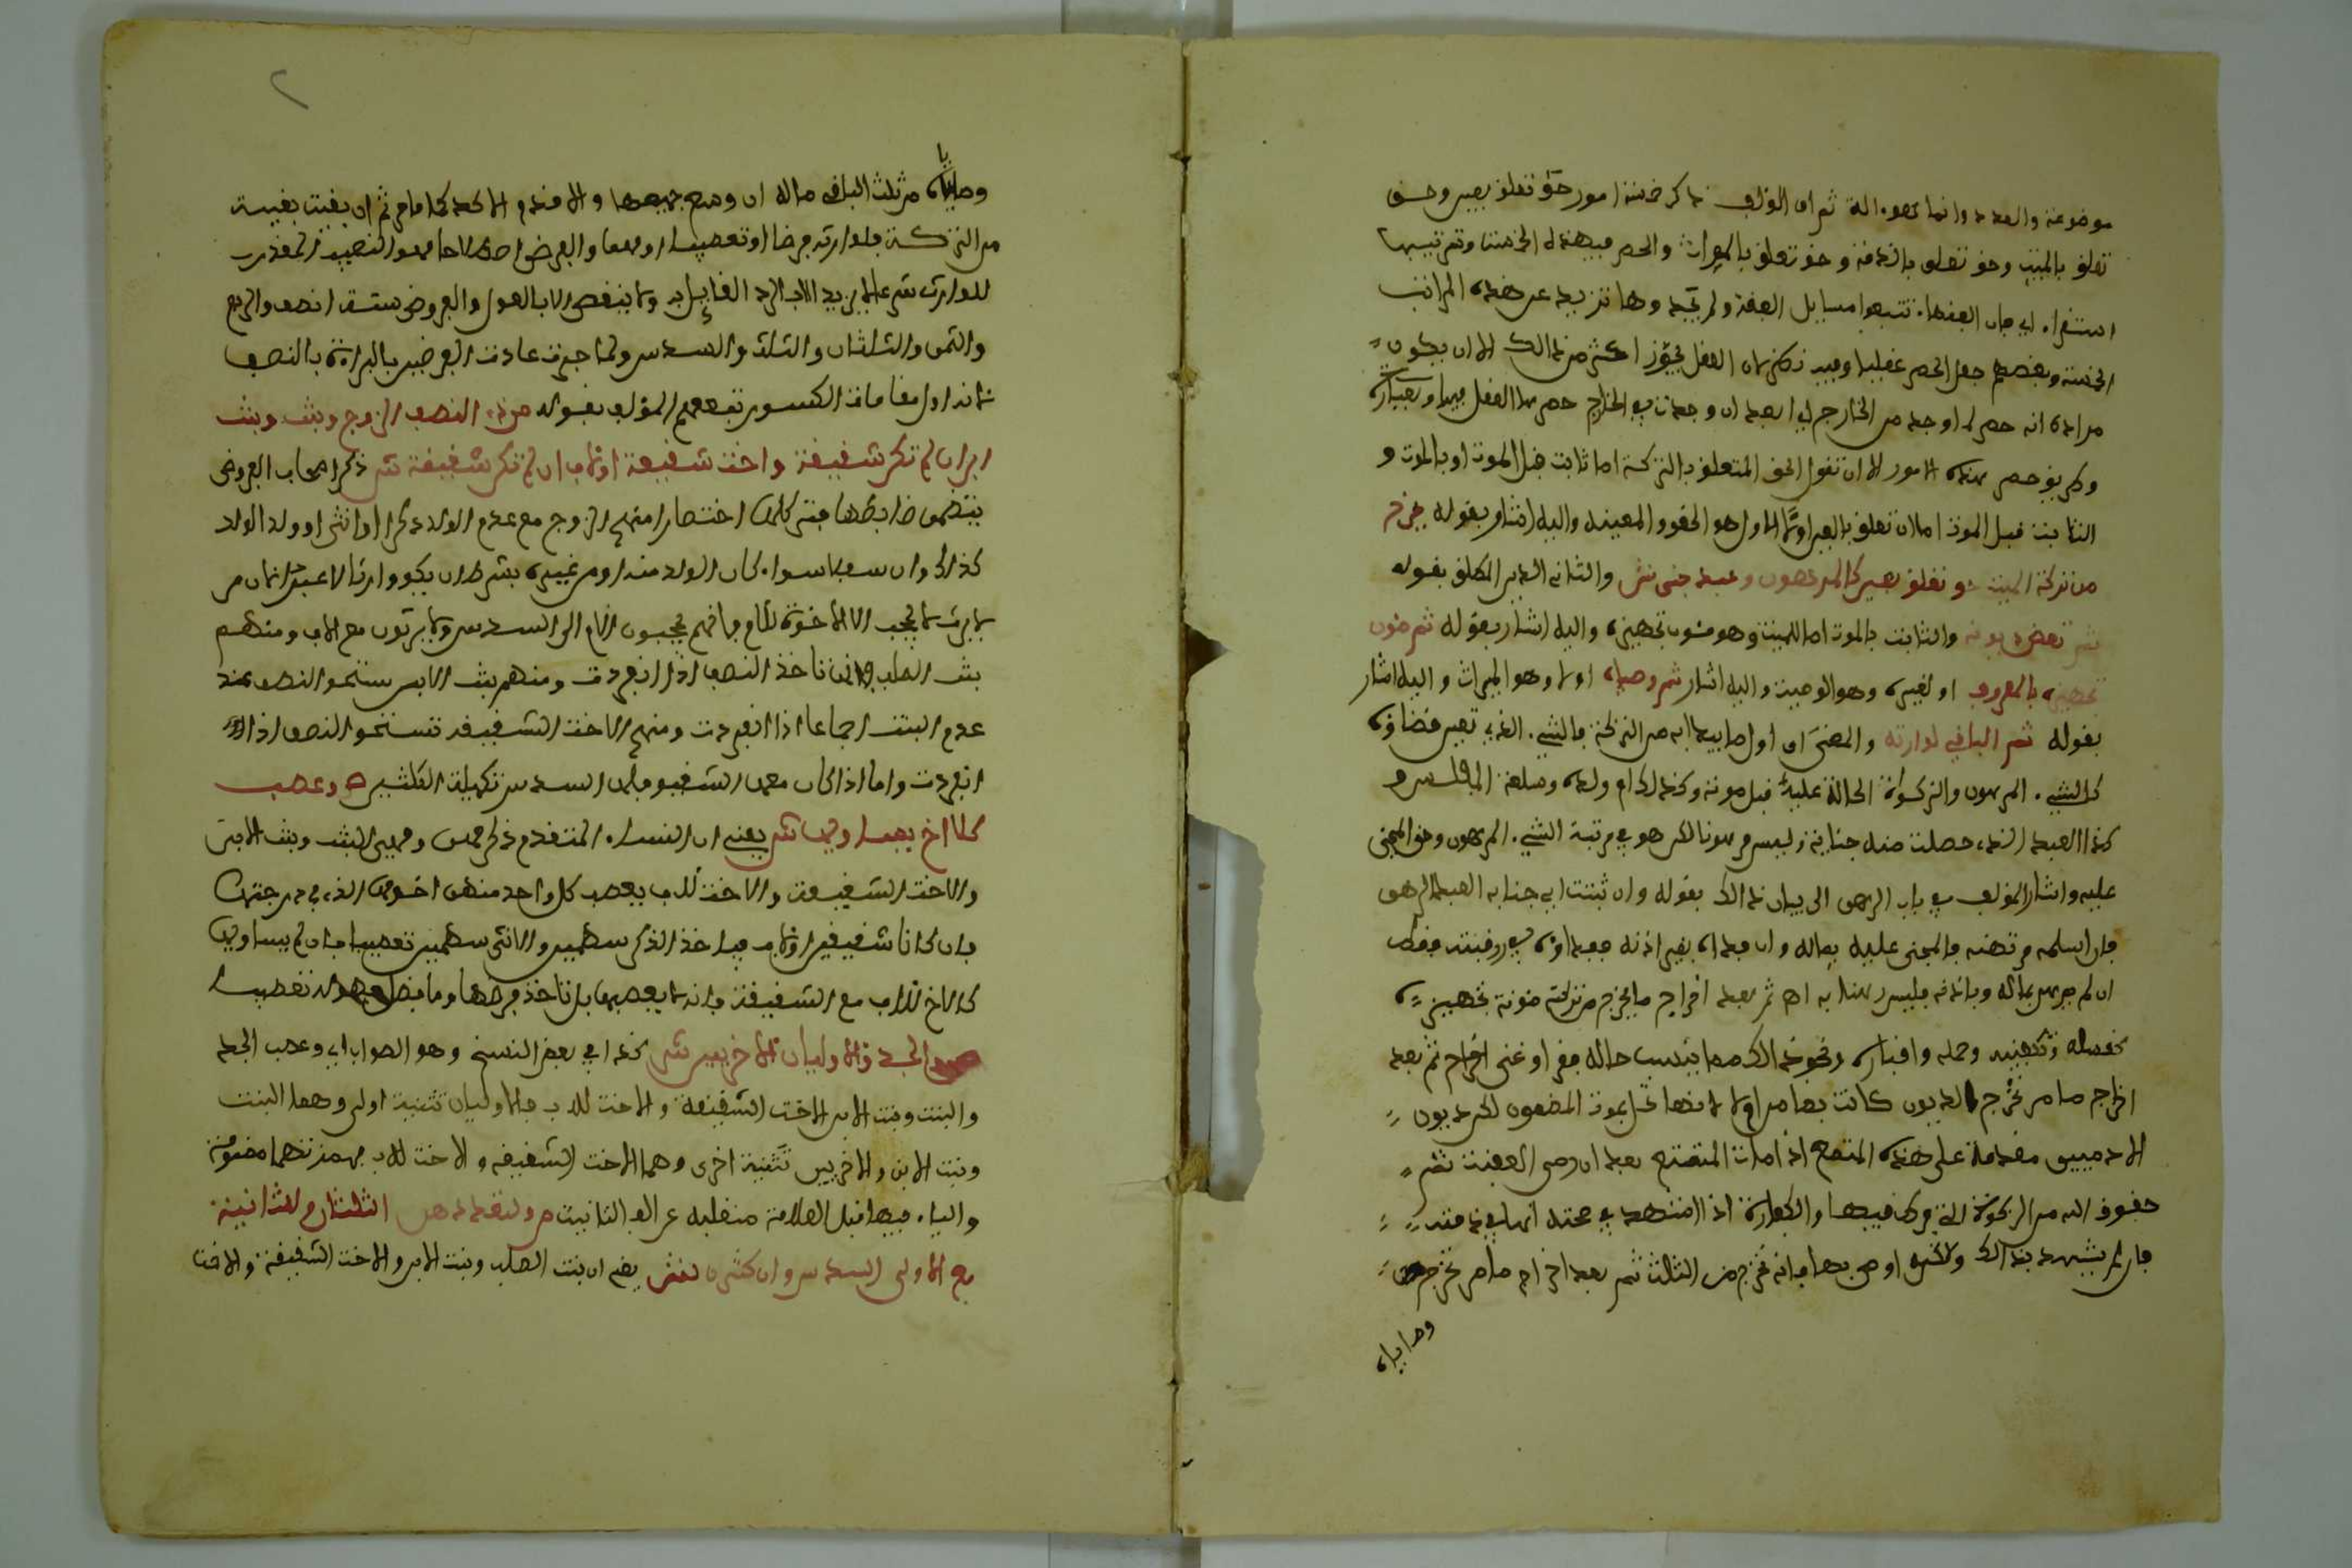 موضوعة والعدد وانما هو اله ثم ان المؤلف ذكر خمسة امور حق تعلق بعين وحق
تعلق بالميت وحق تعلق بالذمة وحق تعلق بالميراث والحصر في هذه الخمسة وترتيبها
استقراء اي بان الفقهاء تتبعوا مسايل الفقه ولم يجدوها تزيد عن هذه المراتب
الخمسة وبعضهم جعل الحصر عقليا وفيه نظر لان العقل يجوز اكثر من ذالك الا ان يكون
مراده انه حصر لما وجد من الخارج اي بعد ان وجدت في الخارج حصرها العقل فيها وعبارة
وطريق حصر هذه الامور لا ان تقول الحق المتعلق بالتركة اما ثابت قبل الموت او بالموت و
الثابت قبل الموت اما ان تعلق بالعين اولا الاول هو الحقوق المعينة واليه اشار بقوله يخرج
من تركة الميت حق تعلق بعين كالمرهون وعبد جنى ش والثاني الدين المطلق بقوله
ثم تقضى ديونه والثابت بالموت اما للميت وهو مئون تجهيزه واليه اشار بقوله ثم مئون
تجهيزه بالمعروف او لغيره وهو الوصية واليه اشار ثم وصاياه اولا وهو الميراث واليه اشار
بقوله ثم الباقي لوارثه والمعنى ان اول ما يبدا به من التركة بالشيء الذي تعين قضاؤه
كالشيء المرهون والزكوة الحالة عليه قبل موته وكذلك ام ولده وسلعة المفلس و
كذا العبد الذي حصلت منه جناية وليس مرهونا لكن هو في مرتبة الشيء المرهون وحق المجني
عليه واشار المؤلف في باب الرهن الى بيان ذالك بقوله وان ثبتت اي جناية العبد الرهن
فان اسلمه مرتهنه فالمجني عليه بماله وان فداه بغير اذنه ففداؤه في رقبته فقط
ان لم يرهن بماله وباذنه فليس رهنا به اه ثم بعد اخراج ما يخرج من تركته مئونة تجهيزه
كغسله وتكفينه وحمله واقباره ونحو ذالك مما يناسب حاله فقرا وغنى اخراج ثم بعد
اخراج ما مر تخرج الديون كانت بضامن اولا لانها تحل بموت المضمون لكن ديون
الادميين مقدمة على هدي المتمتع اذا مات المتمتع بعد ان رمى العقبة ثم
حقوق الله من الزكوة التي فرط فيها والكفارة اذا اشهد في صحته انها في ذمته
فان لم يشهد بذالك ولكنه اوصى بها فانه تخرج من الثلث ثم بعد اخراج ما مر تخرج
وصاياه
وصاياه من ثلث الباقي ماله ان وسع جميعها والا قدم الاكد كما مر ثم ان بقيت بقية
من التركة فلوارثه فرضا او تعصيبا او معا والفرض اصطلاحا هو النصيب المقدر
للوارث شرعا لا يزيد الا بالرد ولا ينقص الا بالعول والفروض ستة النصف والربع
والثمن والثلثان والثلث والسدس ولما جرت عادة الفرضيين بالبداءة بالنصف
لانه اول مقامات الكسور تبعهم المؤلف بقوله من ذي النصف الزوج وبنت وبنت
ابن ان لم تكن شقيقة واخت شقيقة او لاب ان لم تكن شقيقة ش ذكر اصحاب الفروض
بتضمن ضابطها هنا كلها اختصارا منهم الزوج مع عدم الولد ذكرا او انثى او ولد الولد
كذالك وان سفل سواء كان الولد منه او من غيره بشرط ان يكون وارثا لا عبرة بمن
لا يرث لا يحجب الا الاخوة للام فانهم يحجبون الام الى السدس ولا يرثون مع الاب ومنهم
بنت الصلب فانها تاخذ النصف اذا انفردت ومنهم بنت الابن تستحق النصف عند
عدم البنت اجماعا اذا انفردت ومنهم الاخت الشقيقة تستحق النصف اذا
انفردت واما اذا كان معها الشقيق فلها السدس تكملة الثلثين ص وعصب
كلا اخ يساويها ش يعني ان النساء المتقدم ذكرهن وهي البنت وبنت الابن
والاخت الشقيقة والاخت للاب يعصب كل واحد منهن اخوها الذي في درجتها
فان كانا شقيقين او لاب فياخذ الذكر سهمين والانثى سهما تعصيبا فان لم يساويها
كالاخ للاب مع الشقيقة فانه لا يعصبها بل تاخذ فرضها وما فضل فهو له تعصيبا
ص والجد والاوليان الاخريين ش كذا في بعض النسخ وهو الصواب اي وعصب الجد
والبنت وبنت الابن الاخت الشقيقة والاخت للاب فالاوليان تثنية اولى وهما البنت
وبنت الابن والاخريين تثنية اخرى وهما الاخت الشقيقة والاخت للاب بهمزتها مضمومة
والياء فيها قبل العلامة منقلبة عن الف التانيث ص ولتعددهن الثلثان وللثانية
مع الاولى السدس وان كثرن ش يعني ان بنت الصلب وبنت الابن والاخت الشقيقة والاخت